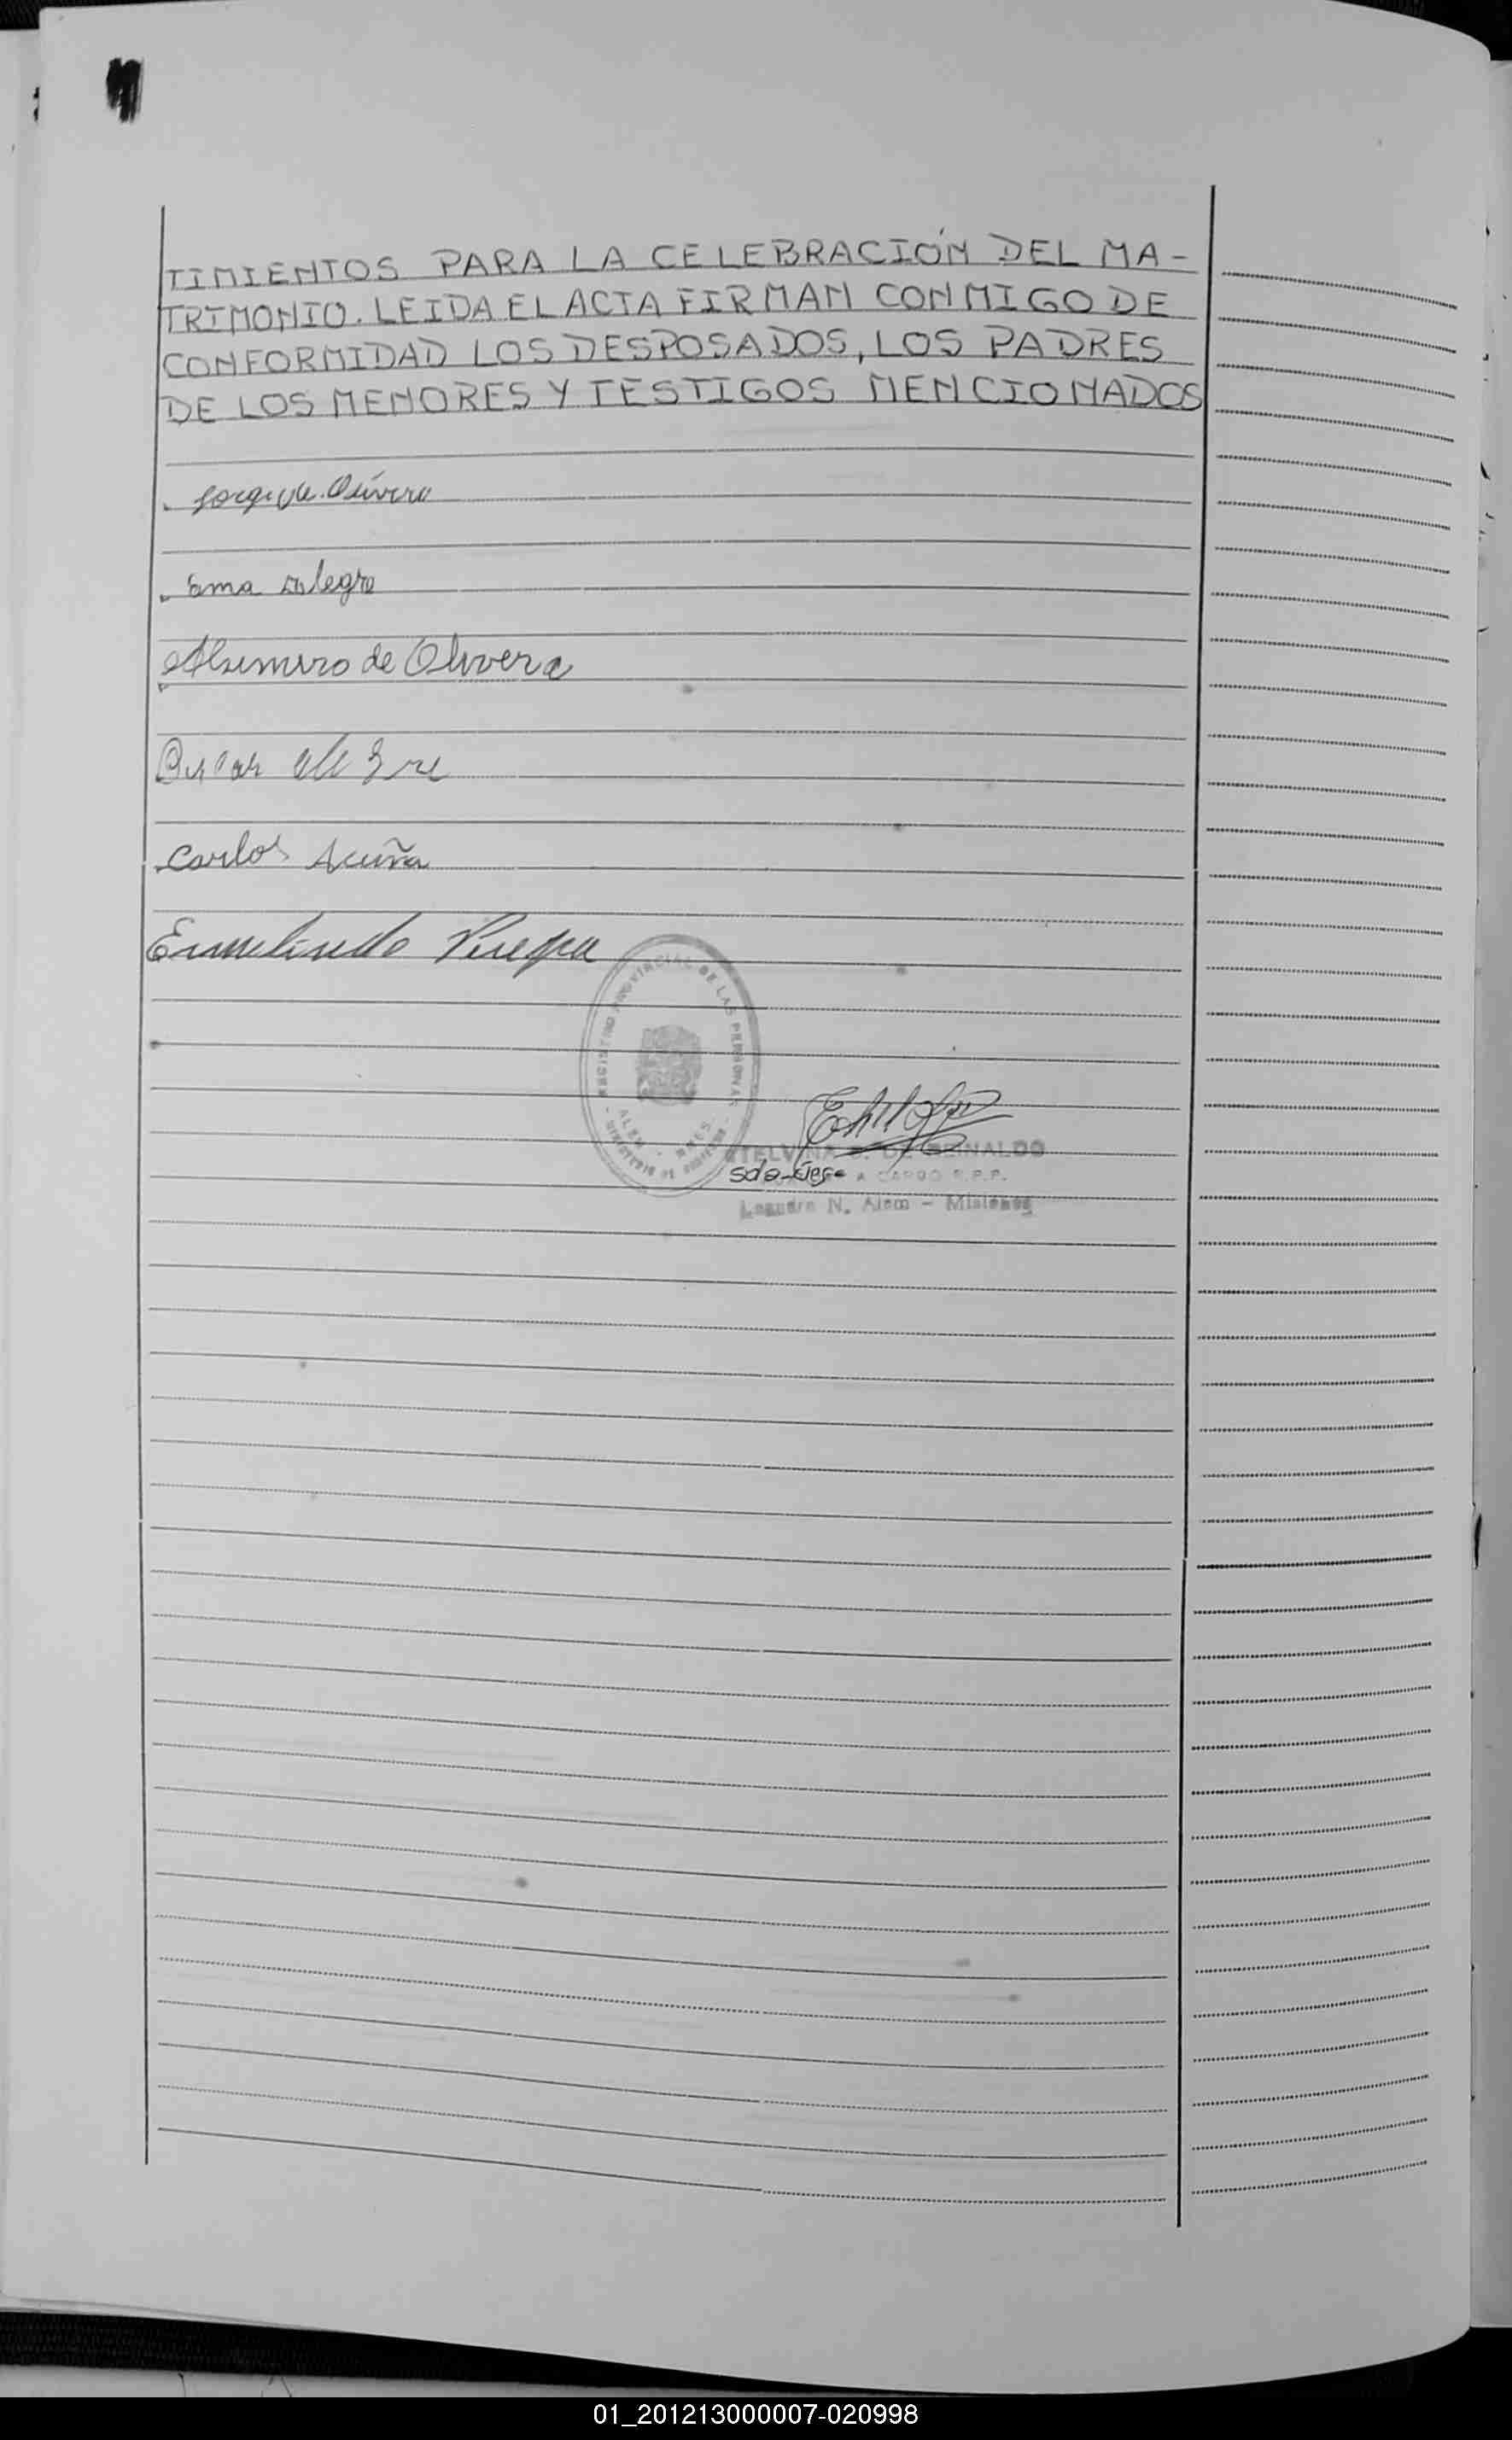 TIMIENTOS PARA LA CELEBRACIÓN DEL MA-
TRIMONIO. LEIDA EL ACTA FIRMAN CONMIGO DE
CONFORMIDAD LOS DESPOSADOS, LOS PADRES
DE LOS MENORES Y TESTIGOS MENCIONADOS
Jorge de Olivera
Ema Alegre
Alsimiro de Olivera
Oscar Alegre
Carlos Acuña
Ermelindo
REGISTRO PROVINCIAL DE LAS PERSONAS
ALEM - MNES.
DE REINALDO
A CARGO R.P.P.
Leandro N. Alem - Misiones
01_201213000007-020998